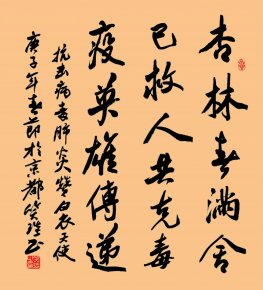 杏林春满舍
已救人共克毒
疫英雄傳递
抗击病毒肺炎赞白衣天使
庚子年春節於京都